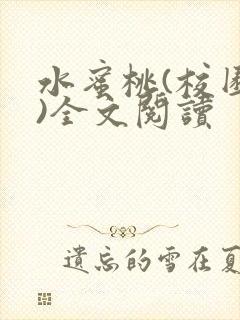 水蜜桃(校園
)全文閱讀
遺忘的雪在夏